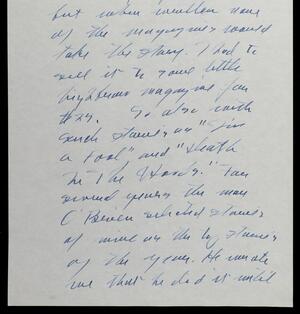 but when written none
of the magazines would
take the story. I had to
sell it to some little
highbrow magazine for
$25. So also with
such stories as "I'm
a Fool" and "Death
in the Woods." For
several years the man
O'Brien selected stories
of mine as the big stories
of the year. He wrote
me that he did it until